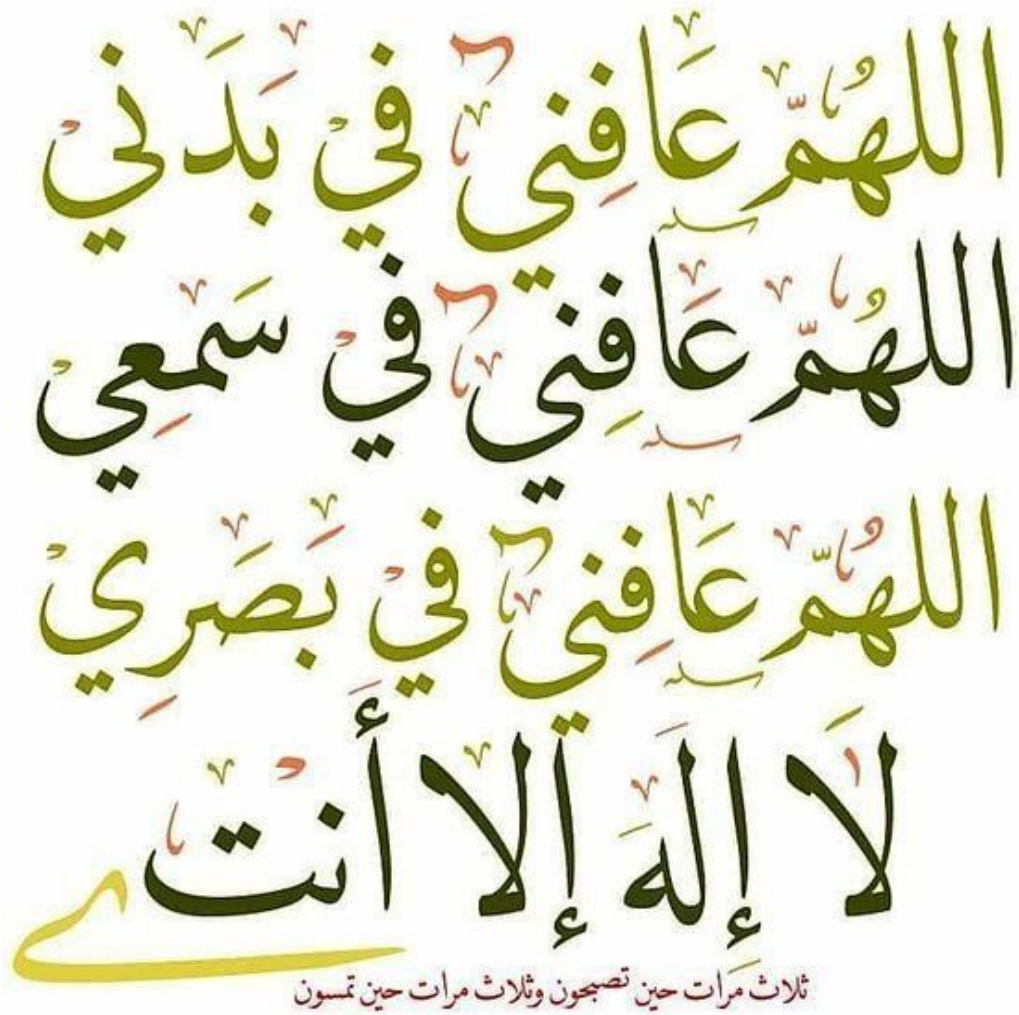 اللهُمّ عَافِني في بَدَني
اللهُمّ عَافِني في سَمعِي
اللهُمّ عَافِني في بَصَرِي
لَا إِلهَ إلا أَنت
ثلاث مرات حين تصبحون وثلاث مرات حين تمسون